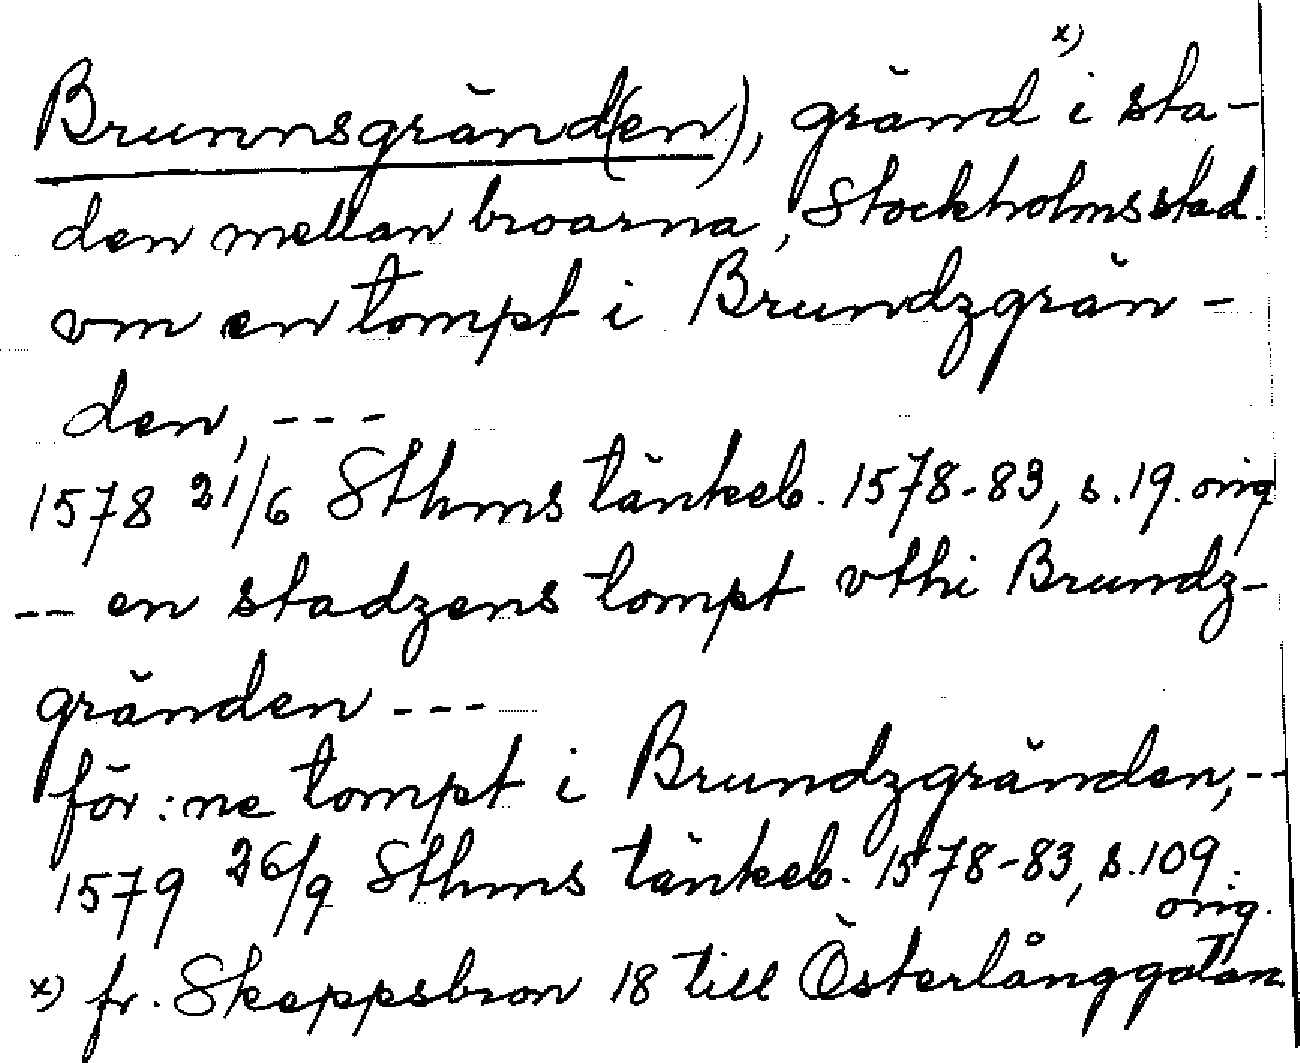 Brunnsgränd(en), gränd x) i sta-
den mellan broarna, Stockholms stad.
om en tompt i Brundzgrän-
den, ---
1578 21/6 Sthms tänkeb. 1578-83, s. 19. orig
-- en stadzens tompt vthi Brundz-
gränden ---
för:ne tompt i Brundzgränden, --
1579 26/9 Sthms tänkeb. 1578-83, s. 109.
orig.
x) fr. Skeppsbron 18 till Österlånggatan